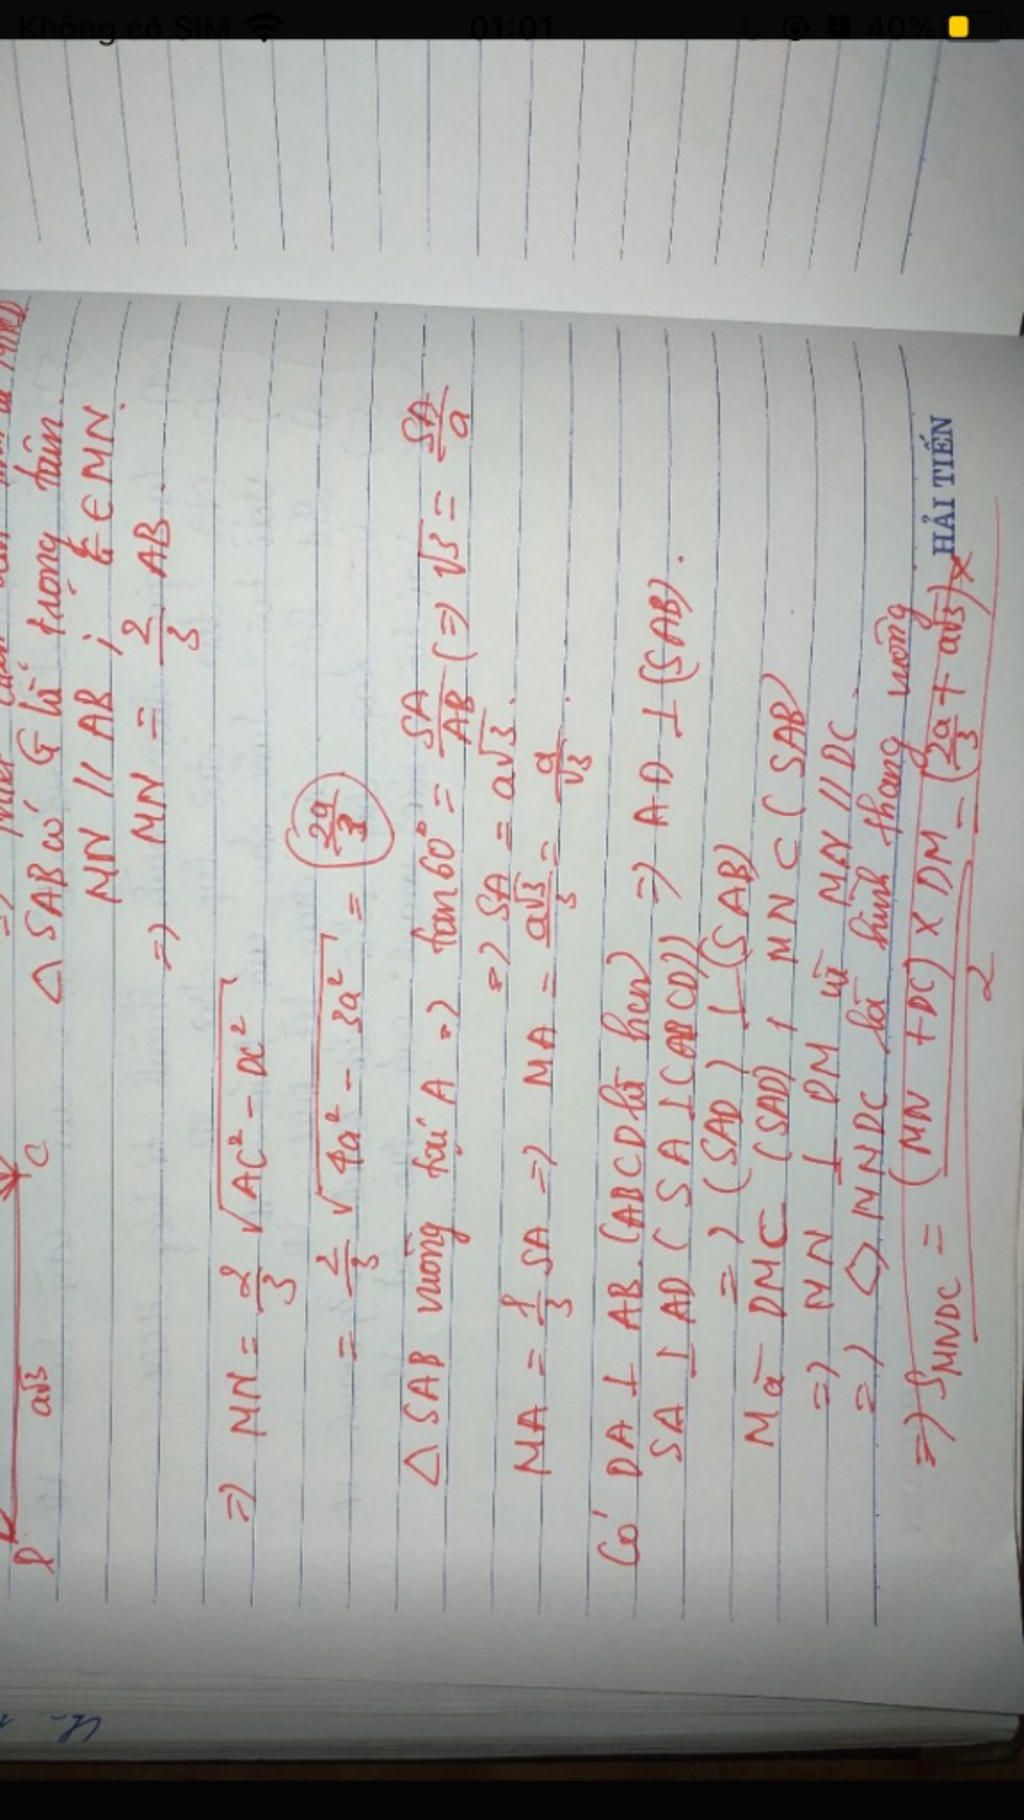 Không có SIM 01:01 40%
△ SAB có G là trọng tâm.
MN // AB ; G ∈ MN.
=> MN = 2/3 AB.
C
a√3
=> MN = 2/3 √(AC² - DC²)
= 2/3 √(4a² - 3a²) = 2a/3
△ SAB vuông tại A => tan60° = SA/AB (=> √3 = SA/a
=> SA = a√3.
MA = 1/3 SA => MA = a√3/3 = a/√3.
Có DA ⊥ AB. (ABCD là hcn)
SA ⊥ AD (SA ⊥ (ABCD)) => AD ⊥ (SAB).
=> (SAD) ⊥ (SAB)
Mà DM ⊂ (SAD), MN ⊂ (SAB)
=> MN ⊥ DM và MN // DC.
=> ◇ MNDC là hình thang vuông.
HẢI TIẾN
=> S MNDC = (MN + DC) x DM / 2 = (2a/3 + a√3) x